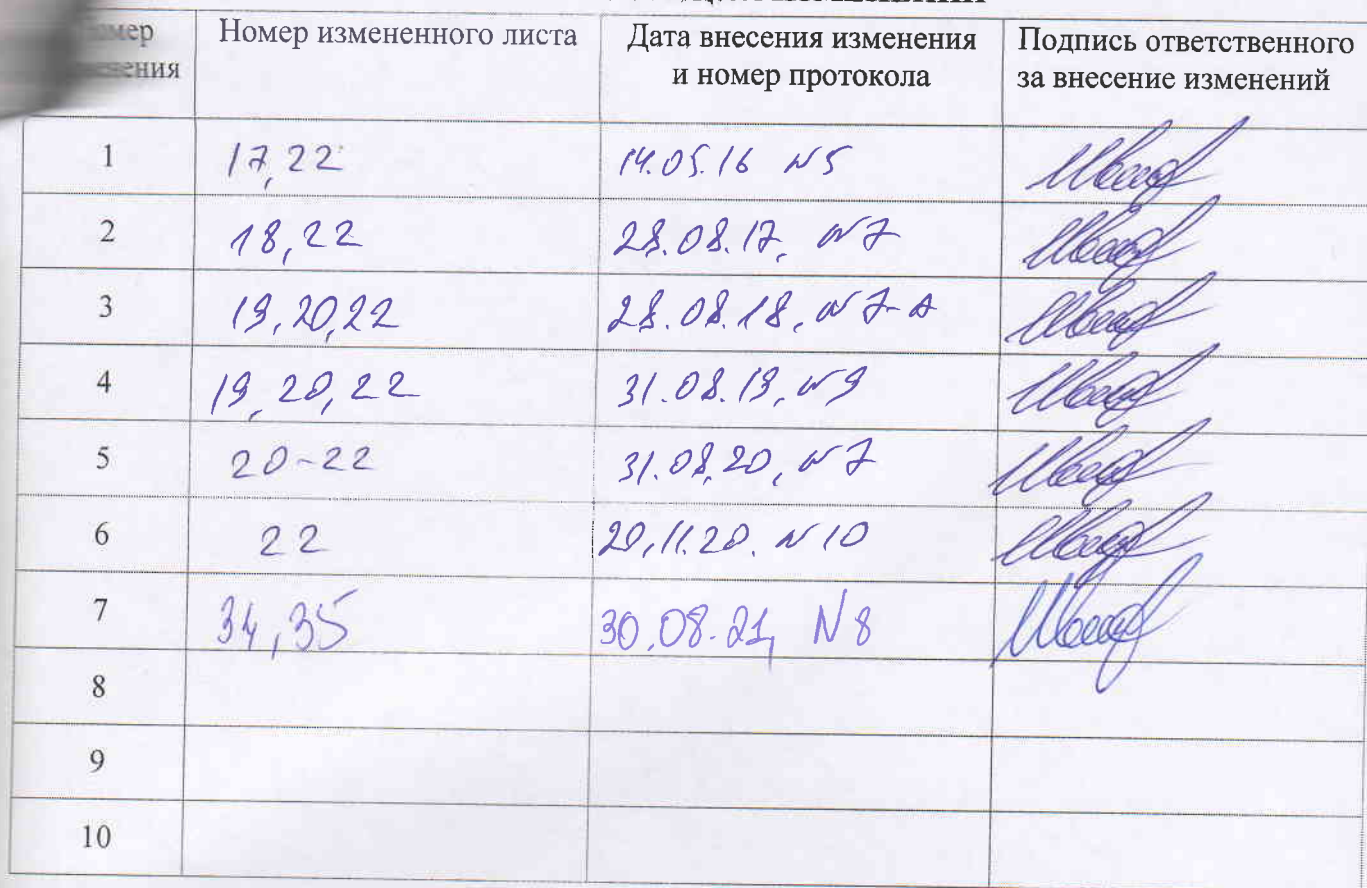 Номер измененного листа Дата внесения изменения Подпись ответственного
и номер протокола за внесение изменений
1 17,22 14.05.16 N5
2 18,22 28.08.17, N7
3 19,20,22 28.08.18, N7-А
4 19,20,22 31.08.19, N9
5 20-22 31.08.20, N7
6 22 20.11.20. N10
7 34,35 30.08.21, N8
8
9
10